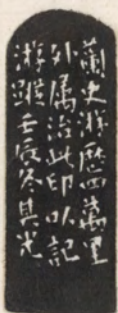 蘭史游歷四萬里
外屬治此印以記
游蹤壬辰冬其光